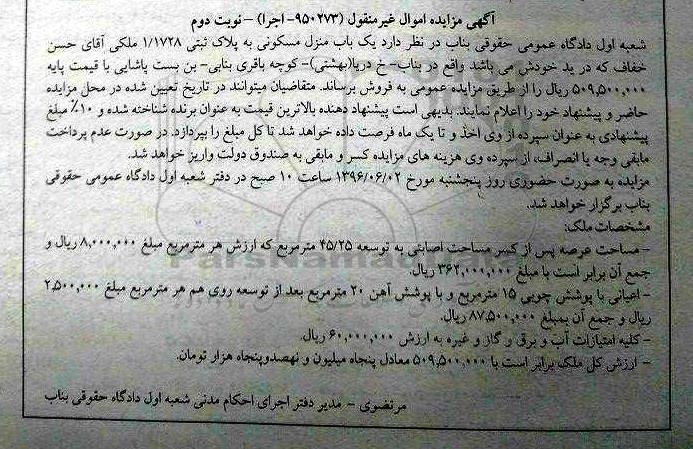 آگهی مزایده اموال غیرمنقول (۹۵۰۲۷۳- اجرا) – نوبت دوم
شعبه اول دادگاه عمومی حقوقی بناب در نظر دارد یک باب منزل مسکونی به پلاک ثبتی ۱/۱۷۲۸ ملکی آقای حسن
خفاف که در ید خودش می باشد واقع در بناب- خ دریا(بهشتی)- کوچه باقری بنابی- بن بست پاشایی با قیمت پایه
۵۰۹,۵۰۰,۰۰۰ ریال را از طریق مزایده عمومی به فروش برساند. متقاضیان میتوانند در تاریخ تعیین شده در محل مزایده
حاضر و پیشنهاد خود را اعلام نمایند. بدیهی است پیشنهاد دهنده بالاترین قیمت به عنوان برنده شناخته شده و ۱۰٪ مبلغ
پیشنهادی به عنوان سپرده از وی اخذ و تا یک ماه فرصت داده خواهد شد تا کل مبلغ را بپردازد. در صورت عدم پرداخت
مابقی وجه یا انصراف، از سپرده وی هزینه های مزایده کسر و مابقی به صندوق دولت واریز خواهد شد.
مزایده به صورت حضوری روز پنجشنبه مورخ ۱۳۹۶/۰۶/۰۲ ساعت ۱۰ صبح در دفتر شعبه اول دادگاه عمومی حقوقی
بناب برگزار خواهد شد.
مشخصات ملک:
- مساحت عرصه پس از کسر مساحت اصابتی به توسعه ۴۵/۲۵ مترمربع که ارزش هر مترمربع مبلغ ۸,۰۰۰,۰۰۰ ریال و
جمع آن برابر است با مبلغ ۳۶۲,۰۰۰,۰۰۰ ریال.
- اعیانی با پوشش چوبی ۱۵ مترمربع و با پوشش آهن ۲۰ مترمربع بعد از توسعه روی هم هر مترمربع مبلغ ۲,۵۰۰,۰۰۰
ریال و جمع آن بمبلغ ۸۷,۵۰۰,۰۰۰ ریال.
- کلیه امتیازات آب و برق و گاز و غیره به ارزش ۶۰,۰۰۰,۰۰۰ ریال.
- ارزش کل ملک برابر است با ۵۰۹,۵۰۰,۰۰۰ معادل پنجاه میلیون و نهصدوپنجاه هزار تومان.
مرتضوی – مدیر دفتر اجرای احکام مدنی شعبه اول دادگاه حقوقی بناب